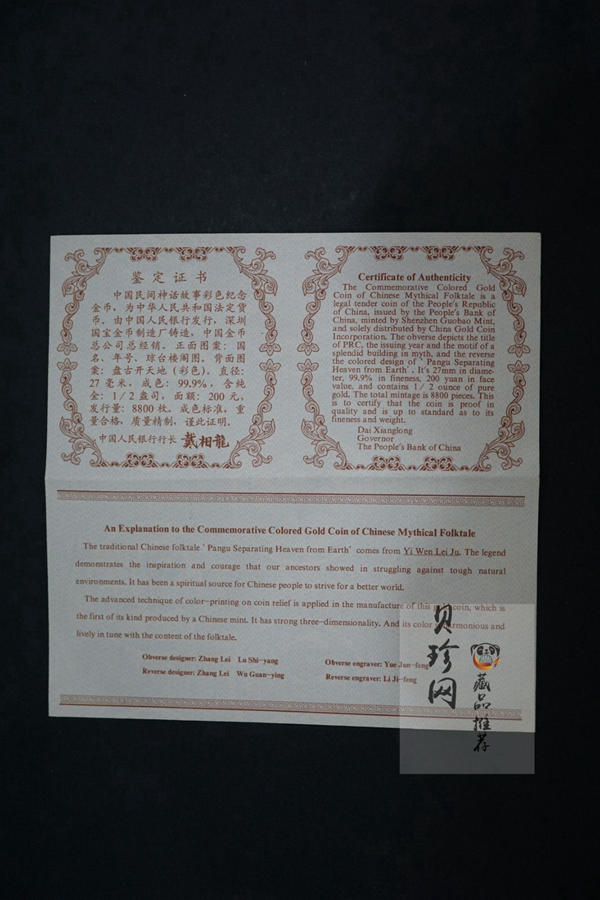 鉴定证书
中国民间神话故事彩色纪念
金币，为中华人民共和国法定货
币，由中国人民银行发行，深圳
国宝金币制造厂铸造，中国金币
总公司总经销。正面图案：国
名、年号、琼台楼阁图，背面图
案：盘古开天地（彩色）。直径：
27毫米，成色：99.9%，含纯
金：1/2盎司，面额：200元，
发行量：8800枚。成色标准，重
量合格，质量精制，谨此证明。
中国人民银行行长 戴相龍
Certificate of Authenticity
The Commemorative Colored Gold
Coin of Chinese Mythical Folktale is a
legal tender coin of the People's Republic
of China, issued by the People's Bank of
China, minted by Shenzhen Guobao Mint,
and solely distributed by China Gold Coin
Incorporation. The obverse depicts the title
of PRC, the issuing year and the motif of a
splendid building in myth, and the reverse
the colored design of ‵Pangu Separating
Heaven from Earth′. It's 27mm in diame-
ter, 99.9% in fineness, 200 yuan in face
value, and contains 1/2 ounce of pure
gold. The total mintage is 8800 pieces. This
is to certify that the coin is proof in
quality and is up to standard as to its
fineness and weight.
Dai Xianglong
Governor
The People's Bank of China
An Explanation to the Commemorative Colored Gold Coin of Chinese Mythical Folktale
The traditional Chinese folktale ‵Pangu Separating Heaven from Earth′ comes from Yi Wen Lei Ju. The legend
demonstrates the inspiration and courage that our ancestors showed in struggling against tough natural
environments. It has been a spiritual source for Chinese people to strive for a better world.
The advanced technique of color-printing on coin relief is applied in the manufacture of this coin, which is
the first of its kind produced by a Chinese mint. It has strong three-dimensionality. And its color harmonious and
lively in tune with the content of the folktale.
Obverse designer: Zhang Lei Lu Shi-yang
Obverse engraver: Yue Jun-feng
Reverse designer: Zhang Lei Wu Guan-ying
Reverse engraver: Li Ji-feng
贝珍网
藏品推荐